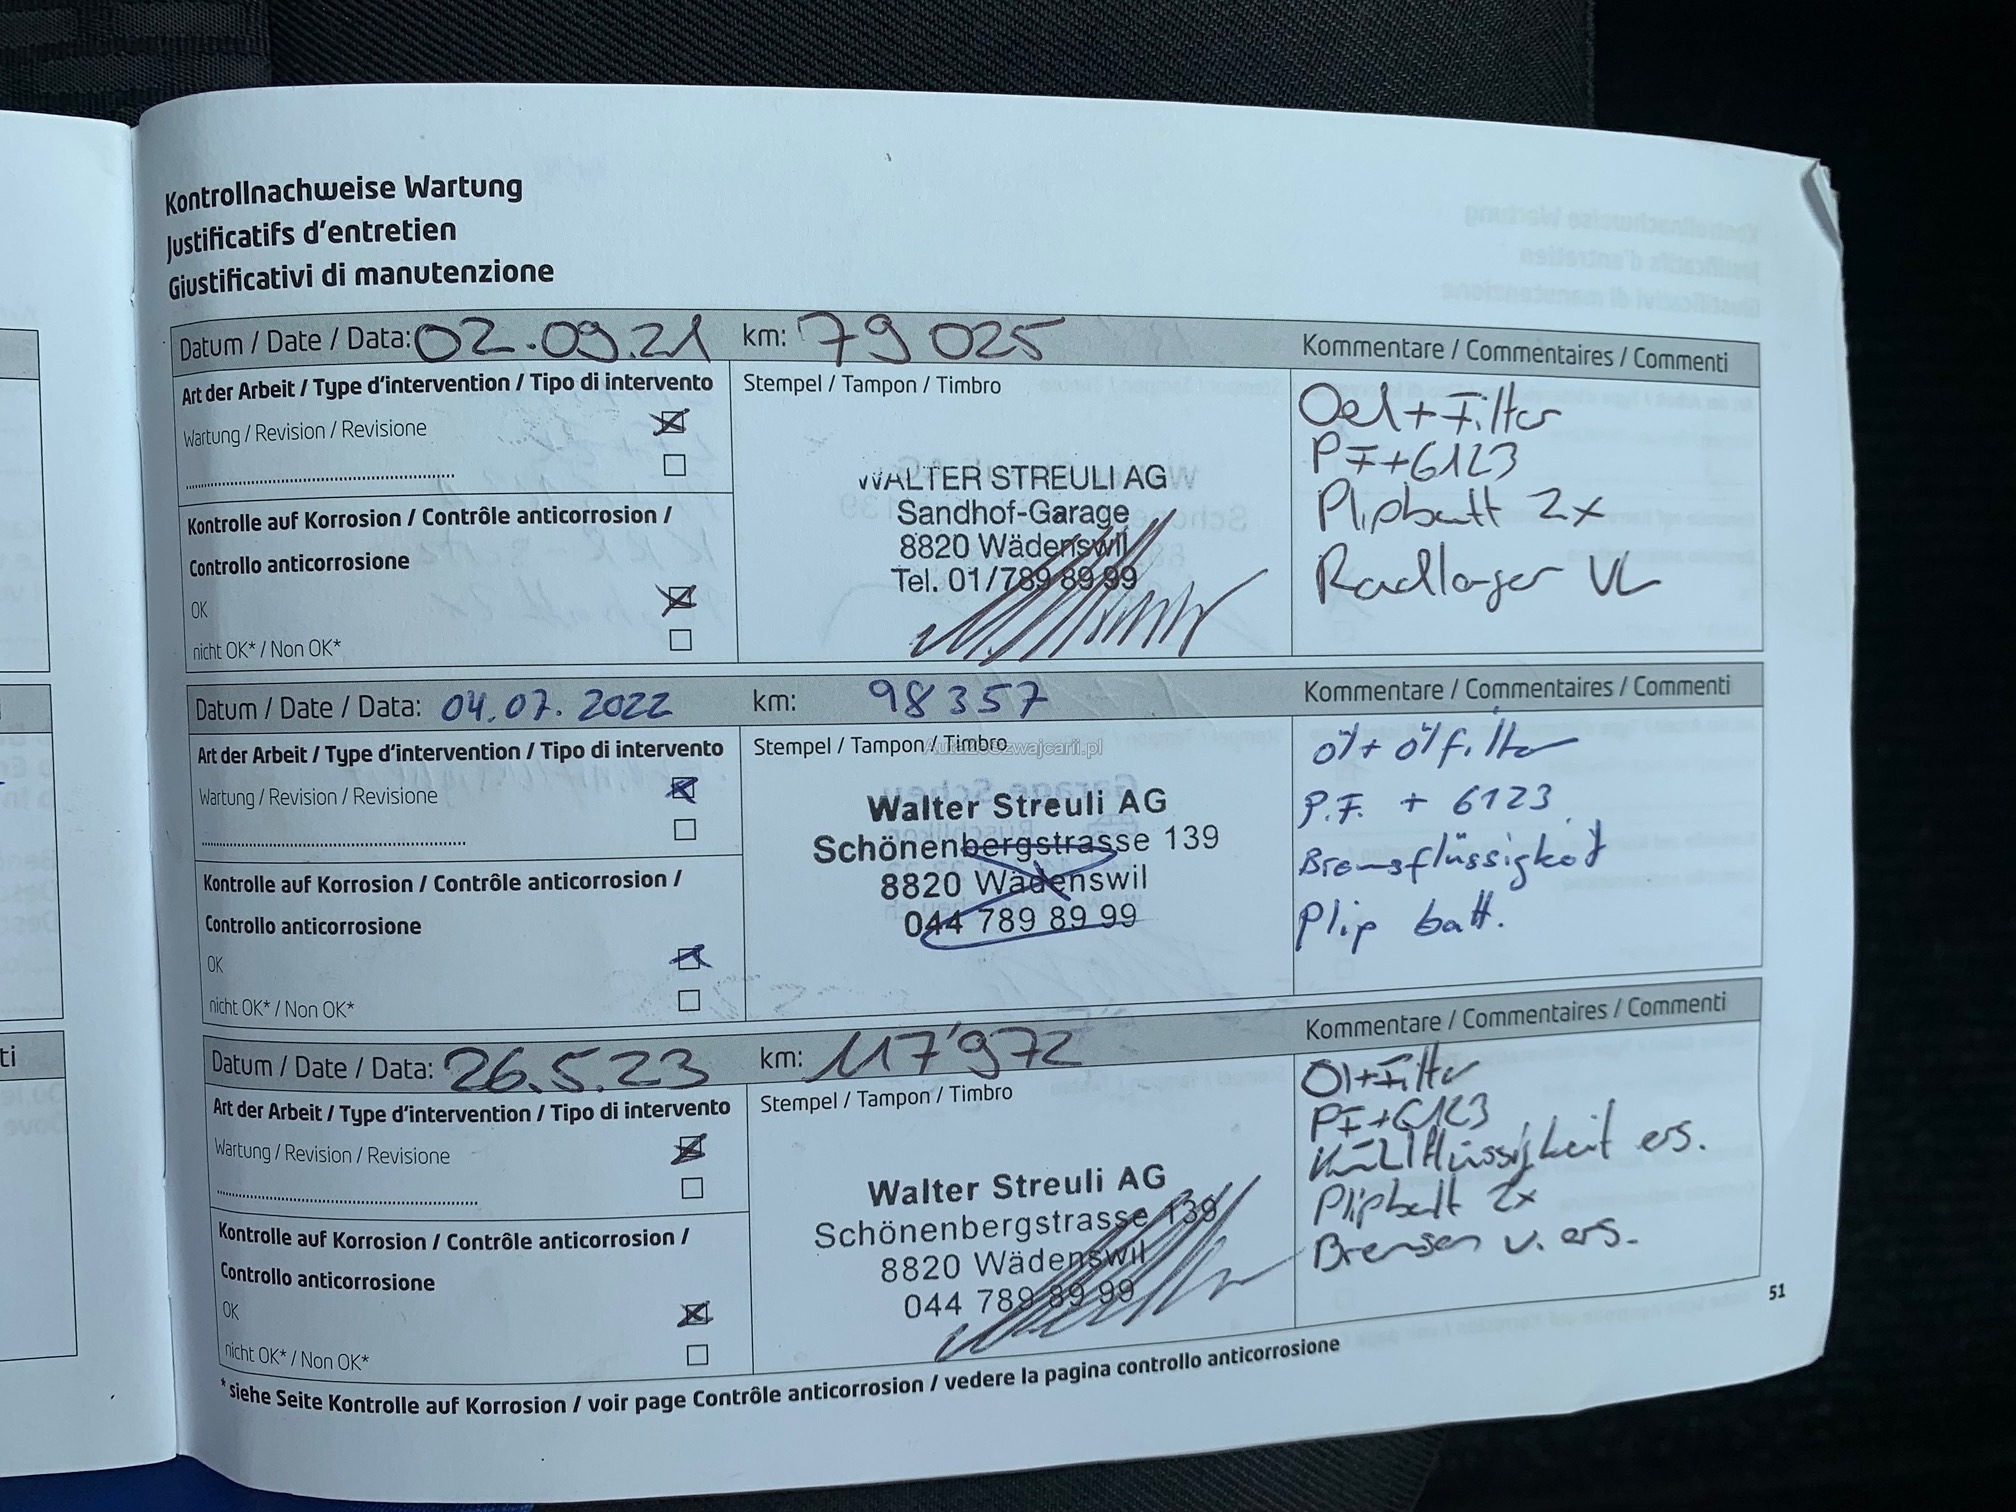 Kontrollnachweise Wartung
Justificatifs d'entretien
Giustificativi di manutenzione
Datum / Date / Data: 02.09.21 km: 79 025 Kommentare / Commentaires / Commenti
Art der Arbeit / Type d'intervention / Tipo di intervento
Wartung / Revision / Revisione
Kontrolle auf Korrosion / Contrôle anticorrosion /
Controllo anticorrosione
OK
nicht OK* / Non OK*
Stempel / Tampon / Timbro
WALTER STREULI AG
Sandhof-Garage
8820 Wädenswil
Tel. 01/789 89 99
Oel + Filter
PF + 6123
Plipbatt 2x
Radlager VL
Datum / Date / Data: 04.07.2022 km: 98357 Kommentare / Commentaires / Commenti
Art der Arbeit / Type d'intervention / Tipo di intervento
Wartung / Revision / Revisione
Kontrolle auf Korrosion / Contrôle anticorrosion /
Controllo anticorrosione
OK
nicht OK* / Non OK*
Stempel / Tampon / Timbro
AutazeSzwajcarii.pl
Walter Streuli AG
Schönenbergstrasse 139
8820 Wädenswil
044 789 89 99
öl + ölfilter
P.F. + 6123
Bremsflüssigkeit
Plip batt.
Datum / Date / Data: 26.5.23 km: 117'972 Kommentare / Commentaires / Commenti
Art der Arbeit / Type d'intervention / Tipo di intervento
Wartung / Revision / Revisione
Kontrolle auf Korrosion / Contrôle anticorrosion /
Controllo anticorrosione
OK
nicht OK* / Non OK*
Stempel / Tampon / Timbro
Walter Streuli AG
Schönenbergstrasse 139
8820 Wädenswil
044 789 89 99
Öl + Filter
PF + 6123
Kühlflüssigkeit ers.
Plipbatt 2x
Bremsen v. ers.
51
*siehe Seite Kontrolle auf Korrosion / voir page Contrôle anticorrosion / vedere la pagina controllo anticorrosione